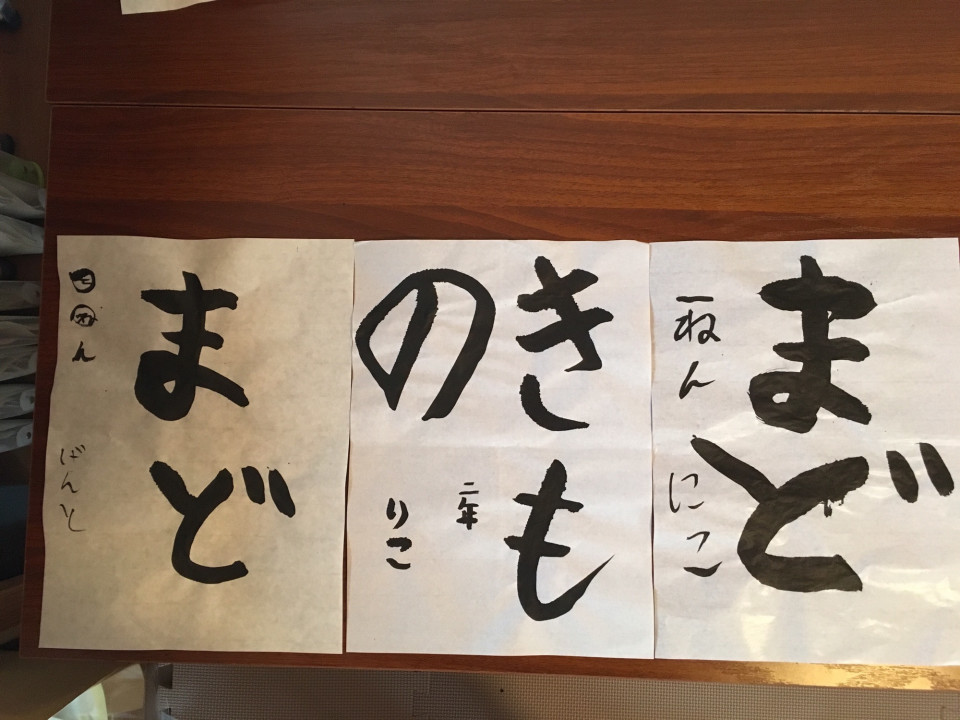 まど
一ねん にこ
きも
の
二年
りこ
まど
げんと